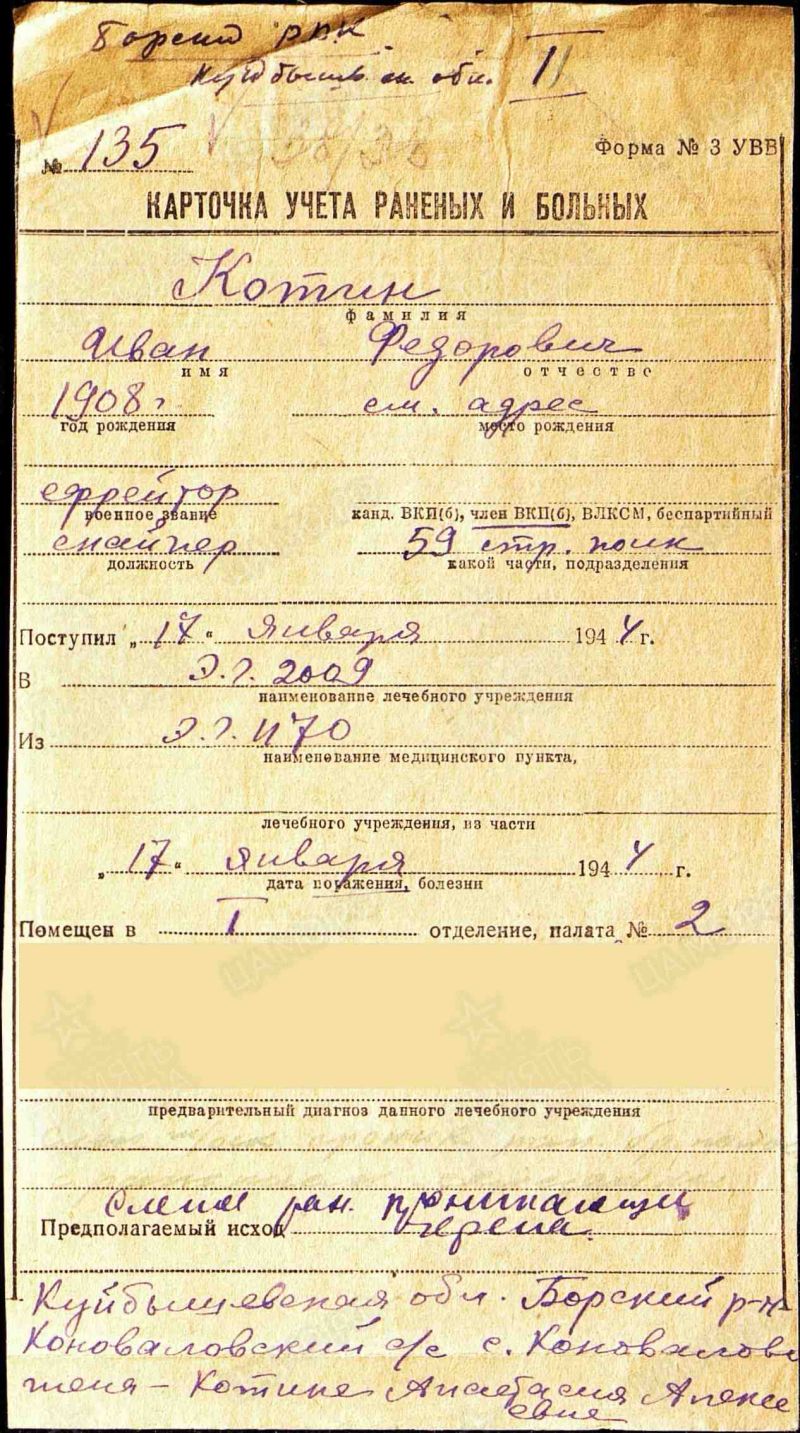 Борский РВК
Куйбышевск. обл. II
№ 135
Форма № 3 УВВ
КАРТОЧКА УЧЕТА РАНЕНЫХ И БОЛЬНЫХ
Котин
фамилия
Иван Федорович
имя отчество
1908 г см. адрес
год рождения место рождения
ефрейтор
военное звание канд. ВКП(б), член ВКП(б), ВЛКСМ, беспартийный
снайпер 59 стр. полк
должность какой части, подразделения
Поступил „17" января 1944 г.
В Э.Г. 2009
наименование лечебного учреждения
Из Э.Г. 1170
наименование медицинского пункта,
лечебного учреждения, из части
„17" января 1944 г.
дата поражения, болезни
Помещен в I отделение, палата № 2
предварительный диагноз данного лечебного учреждения
ран. проникающ
Предполагаемый исход черепа.
Куйбышевская обл. Борский р-н
Коноваловский с/с с. Коновалово
жена - Котина Анастасия Алексе
евна